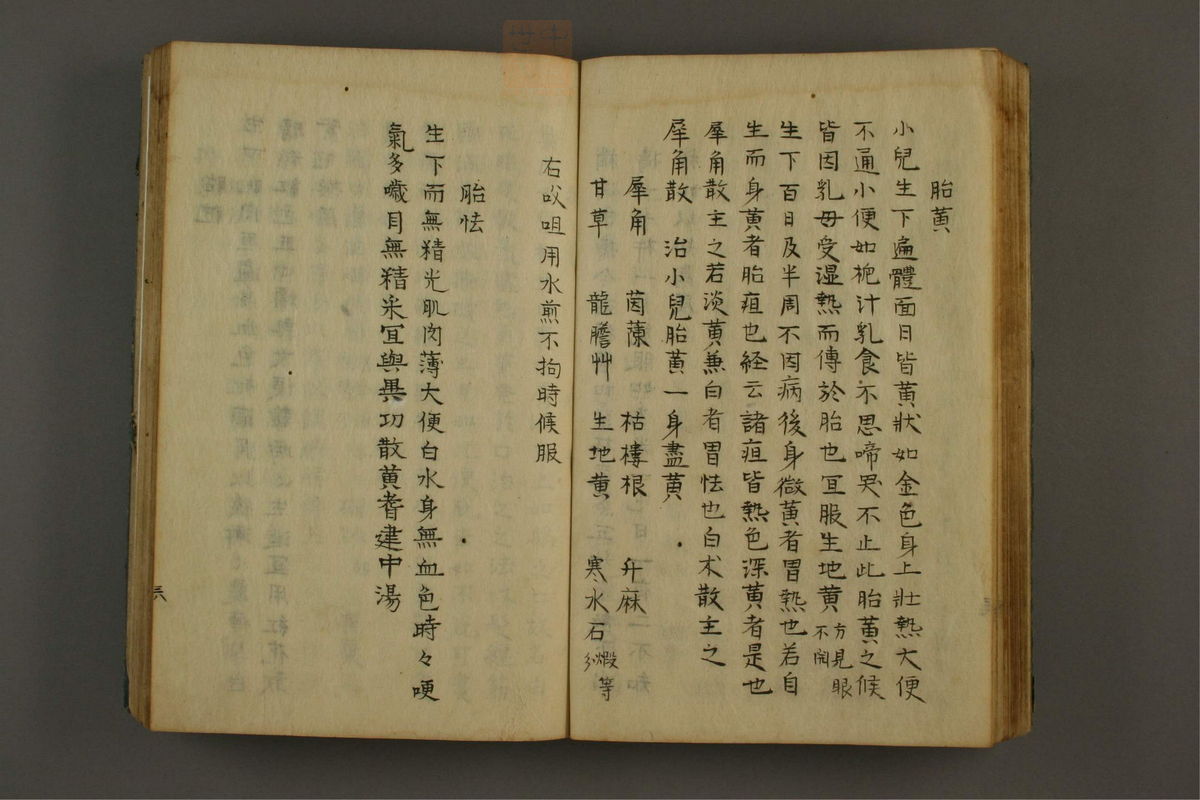 胎黄
小兒生下遍體面目皆黄狀如金色身上壯熱大便
不通小便如梔汁乳食不思啼哭不止此胎黄之候
皆因乳母受湿熱而傳於胎也宜服生地黄方見眼不開
生下百日及半周不因病後身微黄者胃熱也若自
生而身黄者胎疸也経云諸疸皆熱色深黄者是也
犀角散主之若淡黄兼白者胃怯也白术散主之
犀角散 治小兒胎黄一身盡黄
犀角 茵蔯 栝樓根 升麻
甘草 龍膽艸 生地黄 寒水石煅等分
右㕮咀用水煎不拘時候服
胎怯
生下而無精光肌肉薄大便白水身無血色時々哽
氣多噦目無精采宜與異功散黄耆建中湯